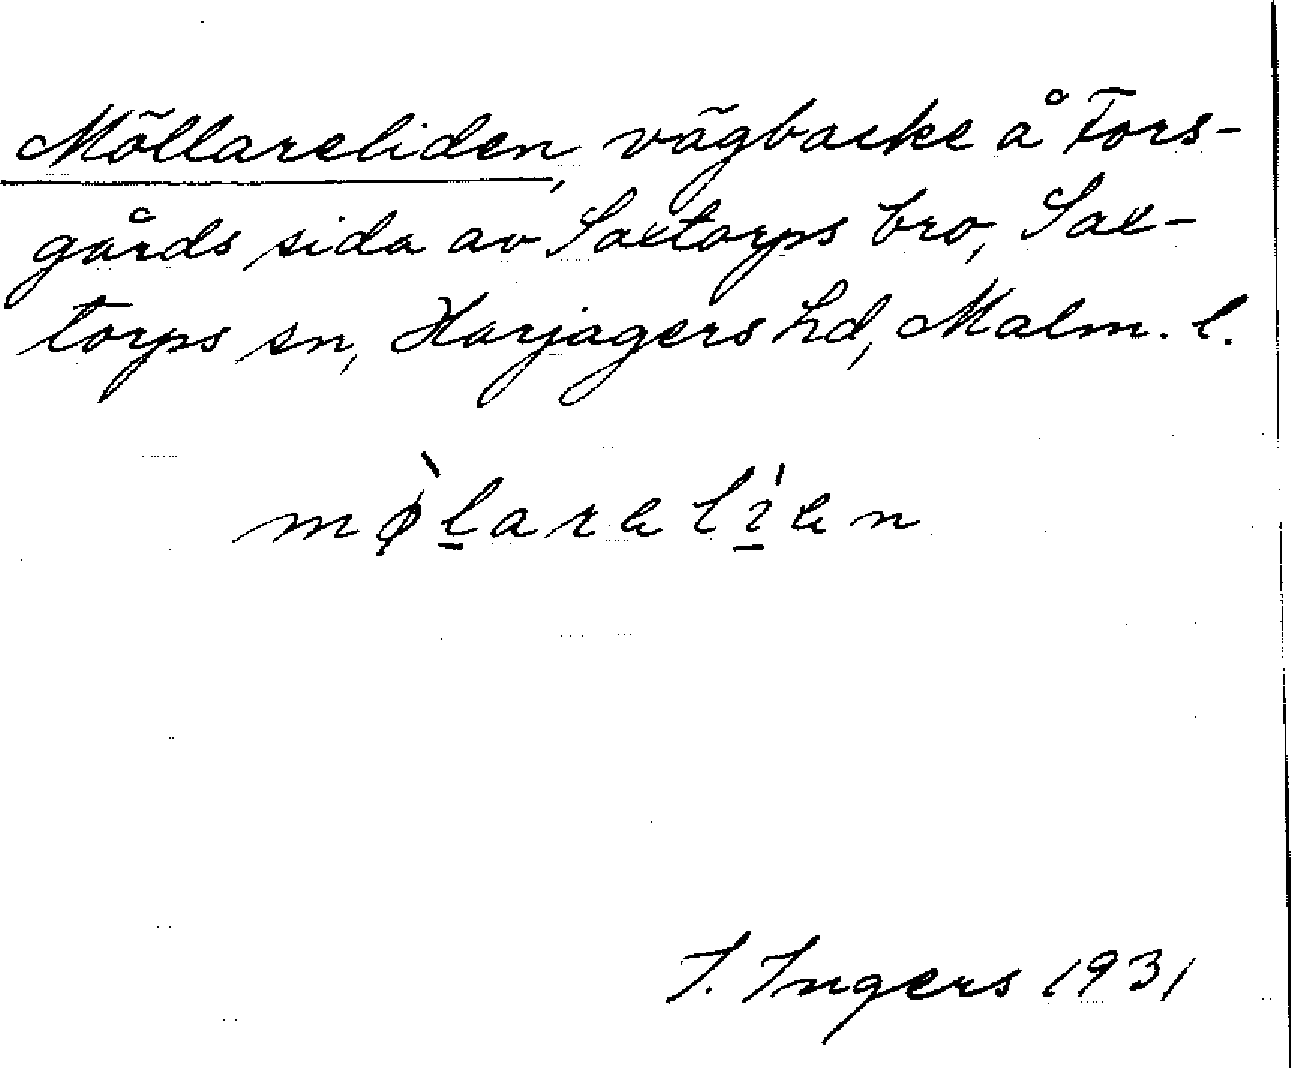 Möllareliden, vägbacke å Fors-
gårds sida av Saxtorps bro, Sax-
torps sn, Harjagers hd, Malm. l.
mø̀l̲arelí̲en
I. Ingers 1931